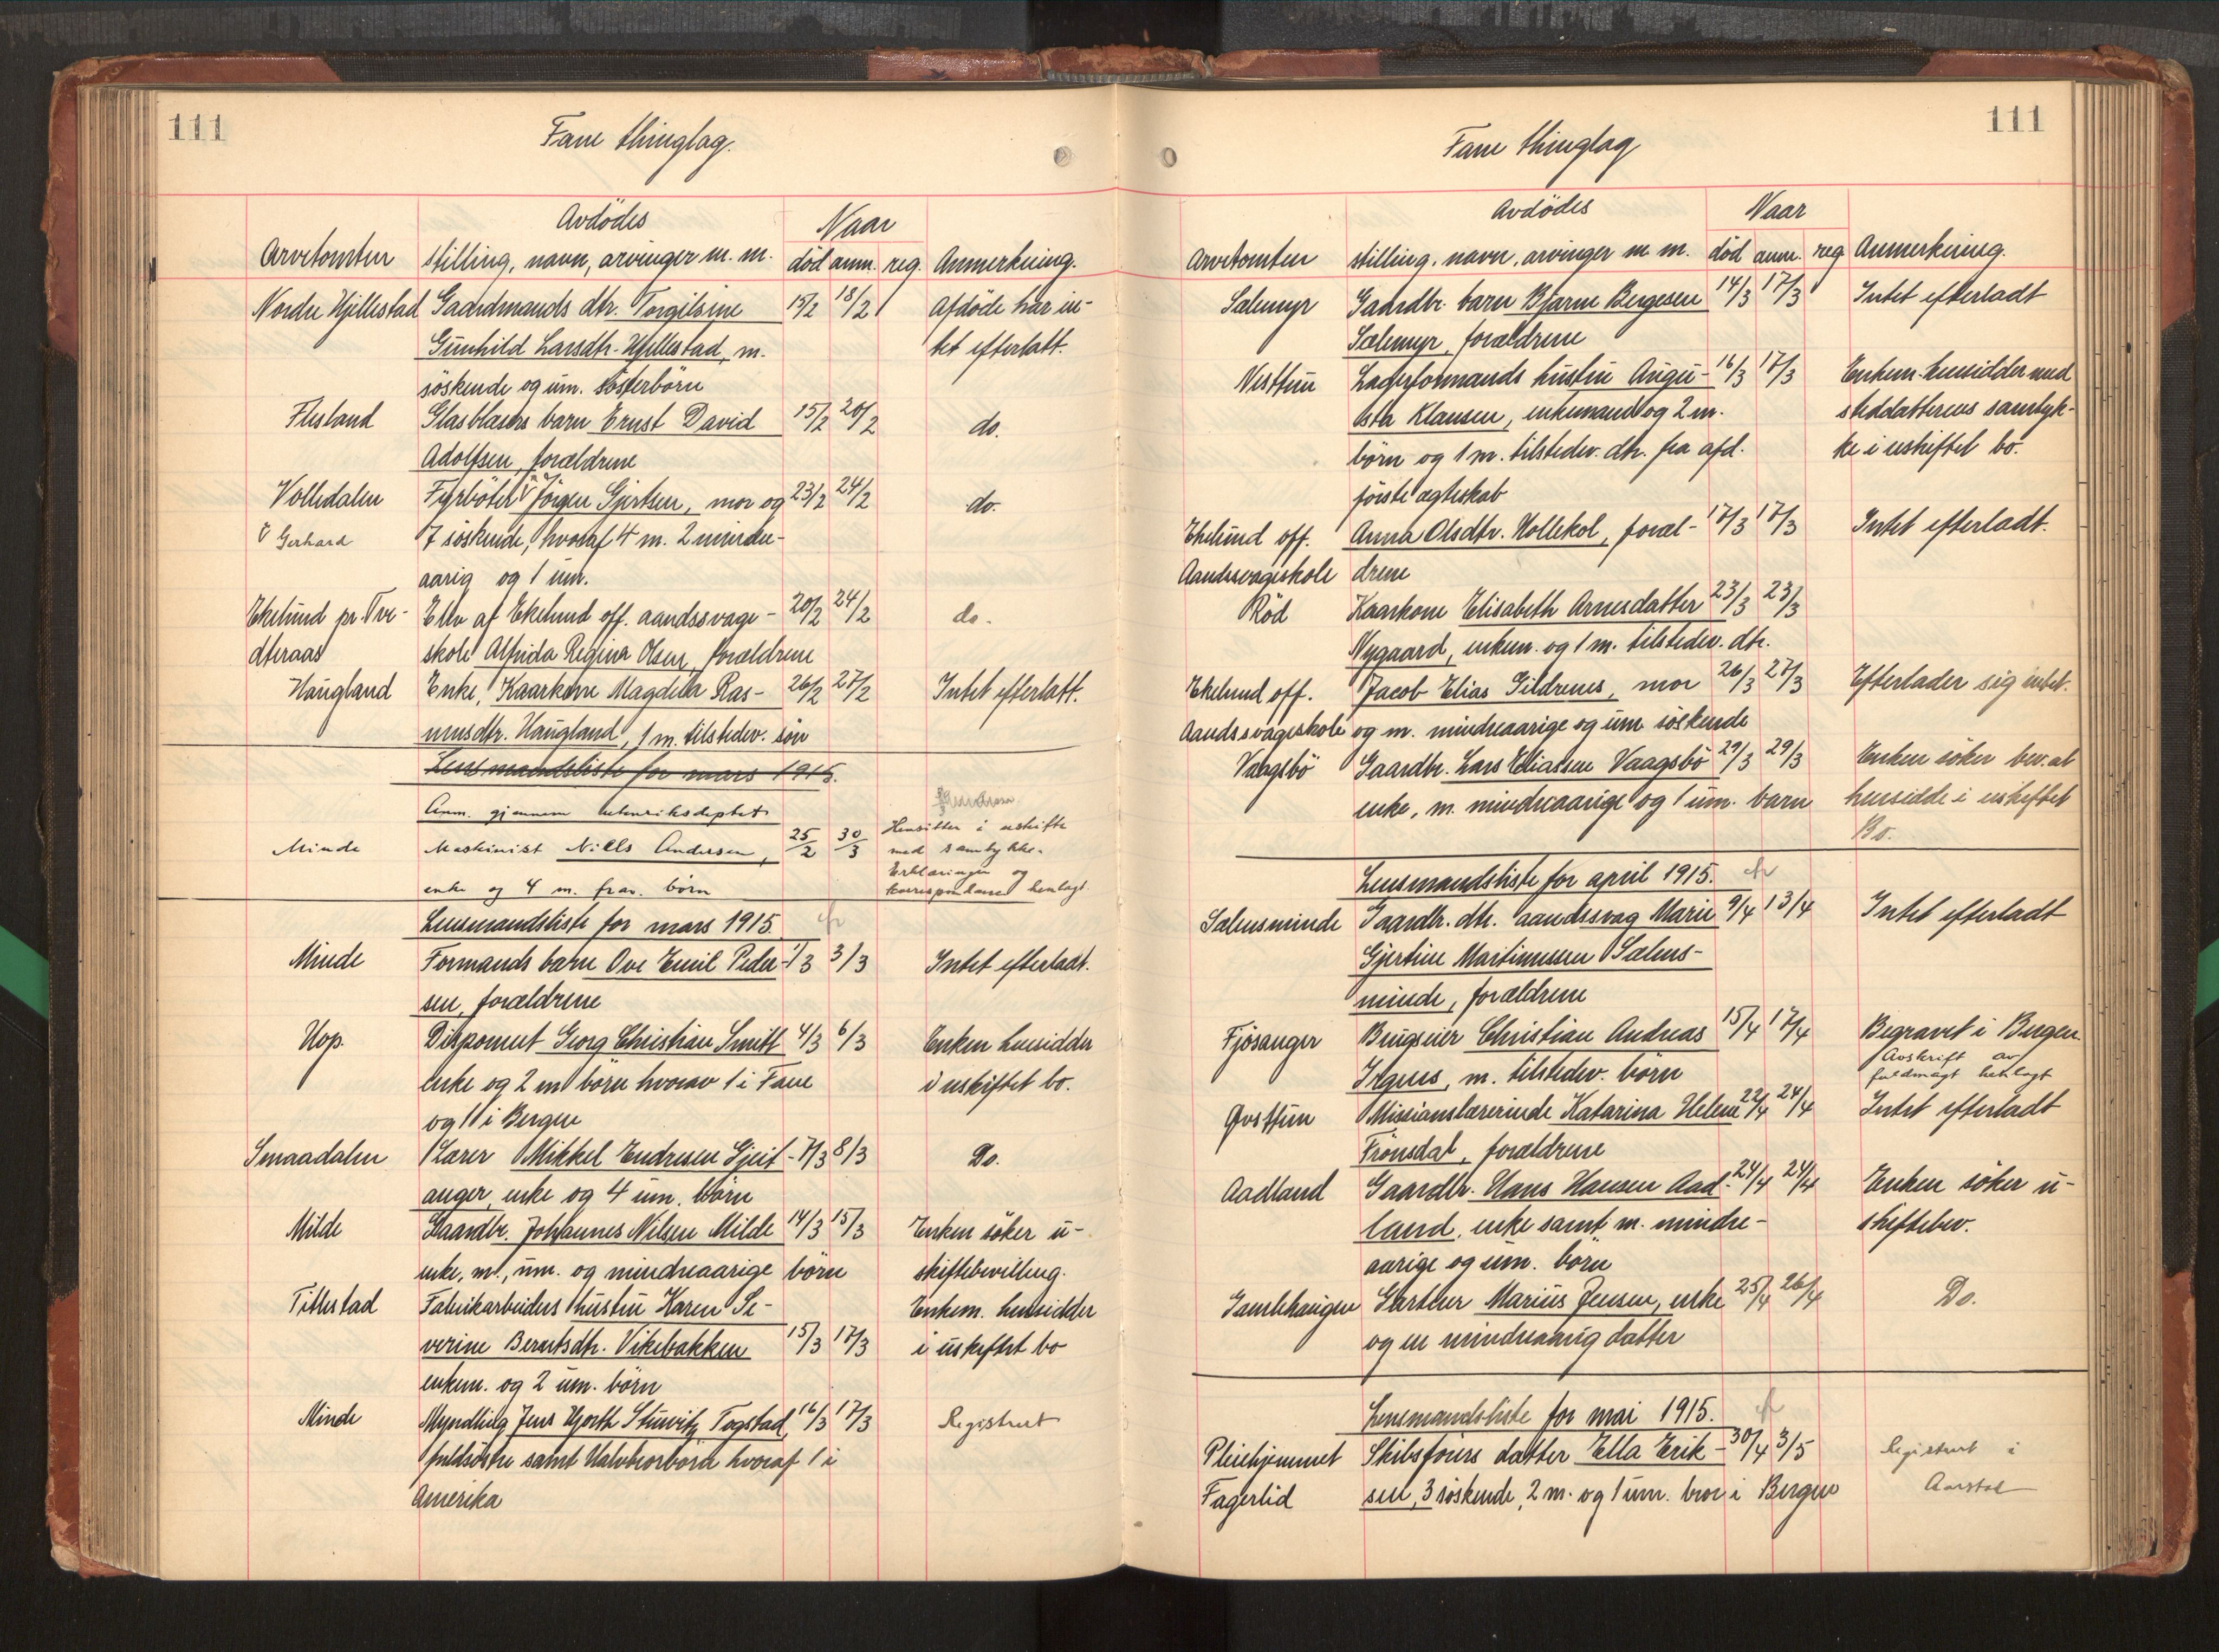 111
Fane thinglag.
Avdödes
Naar
Arvetomten stilling, navn, arvinger m. m. död anm. reg. Anmerkning.
Nordre Hjellestad Gaardmands dtr. Torgilsine 15/2 18/2 Afdöde har in-
Gunhild Larsdtr. Hjellestad, m. tet efterlatt.
söskende og um. sösterbörn
Flesland Glasblæsers barn Ernst David 15/2 20/2 do.
Adolfsen, forældrene
Volledalen Fyrböter v Jörgen Gjertsen, mor og 23/2 24/2 do.
v Gerhard 7 söskende, hvoraf 4 m. 2 mindre-
aarig og 1 um.
Ekelund pr. Tve- Elev af Ekelund off. aandssvage- 20/2 24/2 do.
dteraas skole Alfrida Regina Olsen, forældrene
Haugland Enke, Kaarkone Magdela Ras- 26/2 27/2 Intet efterlatt.
musdtr. Haugland, 1 m. tilstedev. sön
Lensmandsliste for mars 1915.
Anm. gjennem utenriksdeptet
Minde Maskinist Niels Andersen, 25/2 30/3 Hensitter i uskifte
med samtykke.
Erklæringer og
enke og 4 m. frav. börn korrespondance henlagt
Lensmandsliste for mars 1915.
Minde Formands barn Ove Emil Peder- 1/3 3/3 Intet efterladt.
sen, forældrene
Hop. Disponent Georg Christian Smitt 4/3 6/3 Enken hensidder
enke og 2 m börn hvorav 1 i Fane i uskiftet bo.
og 1 i Bergen
Smaadalen Lærer Mikkel Endresen Gjeit- 7/3 8/3 Do.
anger, enke og 4 um. börn
Milde Gaardbr. Johannes Nilsen Milde 14/3 15/3 Enken söker u-
enke, m., um. og mindreaarige börn skiftebevilling.
Titlestad Fabrikarbeiders hustru Karen Se- Enkem. hensidder
verine Berntsdtr. Vikebakken 15/3 17/3 i uskiftet bo
enkem. og 2 um. börn
Minde Myndling Jens Hjorth Stuwitz Togstad, 16/3 17/3 Registrert
fuldsöstre samt Halvbrorbörn hvoraf 1 i
Amerika
111
Fane thinglag
Avdödes
Naar
Arvetomten stilling, navn, arvinger m m. död anm. reg Anmerkning.
Sælemyr Gaardbr. barn Bjarne Bergesen 14/3 17/3 Intet efterladt
Sælemyr, forældrene
Nesttun Lagerformands hustru Augu- 16/3 17/3 Enkem. hensidder med
sta Klausen, enkemand og 2 m. steddatterens samtyk-
börn og 1 m. tilstedev. dtr. fra afd. ke i uskiftet bo.
förste ægteskab
Ekelund off. Anna Olsdtr. Hollekol, foræl- 17/3 17/3 Intet efterladt.
Aandssvageskole drene
Röd Kaarkone Elisabeth Arnesdatter 23/3 23/3
Nygaard, enkem. og 1 m. tilstedev. dtr.
Ekelund off. Jacob Elias Gildrenes, mor 26/3 27/3 Efterlader sig intet.
Aandssvageskole og m. mindreaarige og um söskende
Vaagsbö Gaardbr. Lars Eliassen Vaagsbö 29/3 29/3 Enken söker bev. at
enke, m. mindreaarige og 1 um. barn hensidde i uskiftet
Bo.
Lensmandsliste for april 1915.
Sælensminde Gaardbr. dtr. aandssvag Marie 9/4 13/4 Intet efterladt
Gjertine Martinussen Sælens-
minde, forældrene
Fjösanger Brugseier Christian Andreas 15/4 17/4 Begravet i Bergen.
Irgens, m. tilstedev. börn Avskrift av
fuldmagt henlagt
Övsttun Missionslærerinde Katarina Helene 22/4 24/4 Intet efterladt
Frönsdal, forældrene
Aadland Gaardbr. Hans Hansen Aad- 24/4 24/4 Enken söker u-
land, enke samt m. mindre- skiftebev.
aarige og um. börn
Gamlehaugen Gartner Marius Jensen, enke 25/4 26/4 Do.
og en mindreaarig datter
Lensmandsliste for mai 1915.
Pleiehjemmet Skibsförers datter Ella Erik- 30/4 3/5 Registrert i
Fagerlid sen, 3 söskende, 2 m. og 1 um. bror i Bergen Aarstad